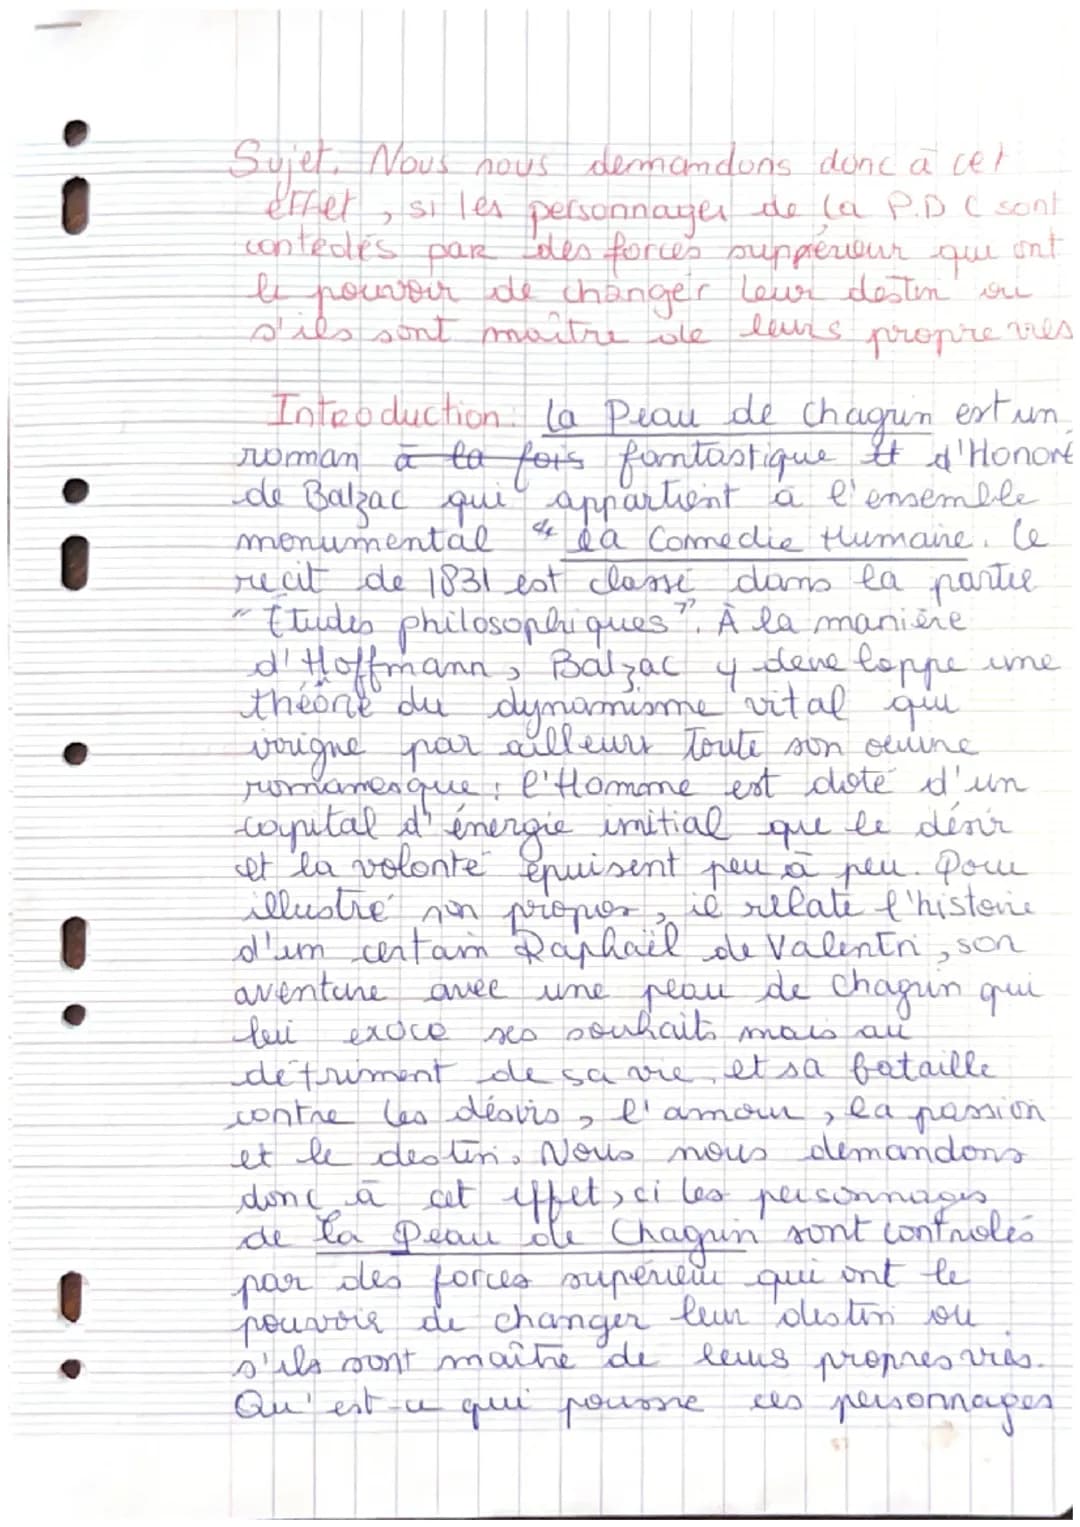 Sujet. Nous nous demandons donc à cet
effet, si les personnages de la P.D C sont
contedés par des forces suppérieur qui ont
le pouvoir de changer leur destin ou
s'ils sont maître de leurs propre vies
Introduction. La Peau de Chagrin est un
roman à la fois fantastique et d'Honoré
de Balzac qui appartient à l'ensemble
monumental " La Comédie Humaine. Le
recit de 1831 est classé dans la partie
"Études philosophiques". À la manière
d'Hoffmann, Balzac y developpe une
théorie du dynamisme vital qui
irrigne par ailleurs toute son œuvre
romanesque : l'Homme est doté d'un
capital d'énergie initial que le désir
et la volonté épuisent peu à peu. Pour
illustré son propos, il relate l'histoire
d'un certain Raphaël de Valentin, son
aventure avec une peau de chagrin qui
lui exoce ses souhaits mais au
détriment de sa vie, et sa bataille
contre les désirs, l'amour, la passion
et le destin. Nous nous demandons
donc à cet effet, si les personnages
de la Peau de Chagrin sont controlés
par des forces supérieur qui ont le
pouvoir de changer leur destin ou
s'ils sont maître de leurs propres vies.
Qu'est-ce qui pousse ces personnages